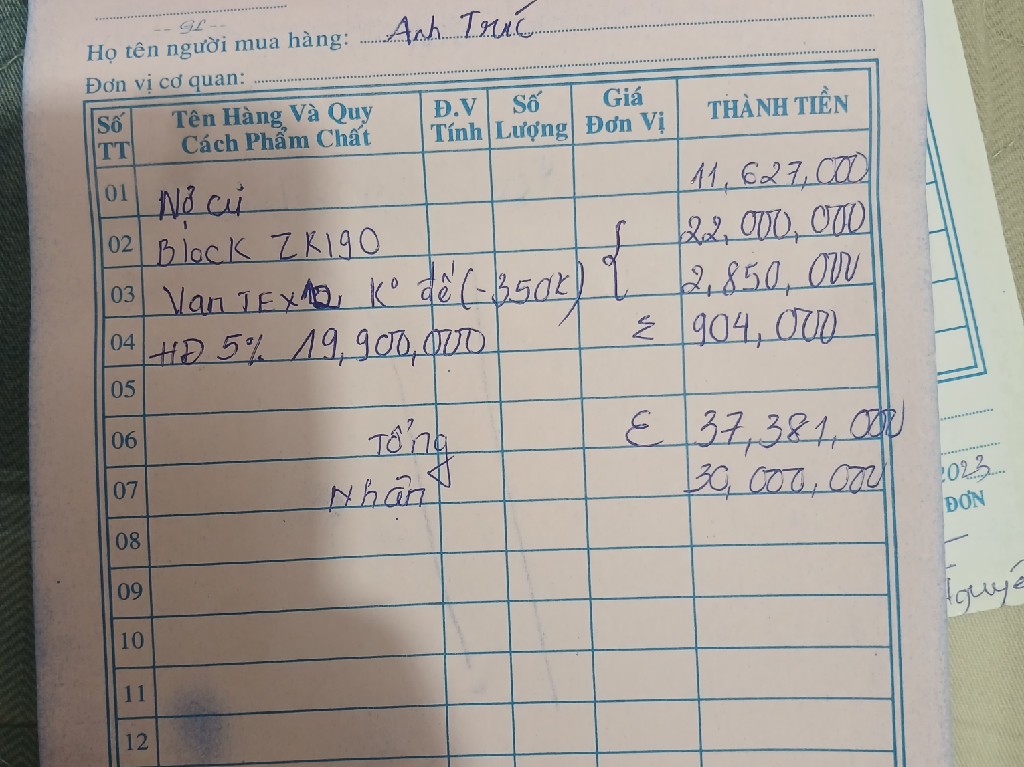 Họ tên người mua hàng: Anh Trúc
Đơn vị cơ quan:
Số TT Tên Hàng Và Quy Cách Phẩm Chất Đ.V Tính Số Lượng Giá Đơn Vị THÀNH TIỀN
01 Nợ cũ 11,627,000
02 Block ZR190 22,000,000
03 Van TEX12 K° đế (-350k) 2,850,000
04 HĐ 5% 19,900,000 Σ 904,000
05
06 Tổng Σ 37,381,000
07 Nhận 30,000,000
08
09
10
11
12
2023
ĐƠN